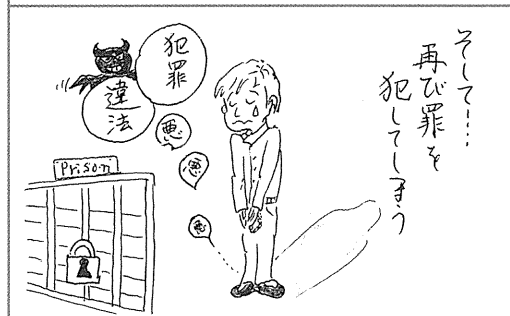 そして…
再び罪を
犯してしまう
犯罪
違法
悪
悪
悪
Prison